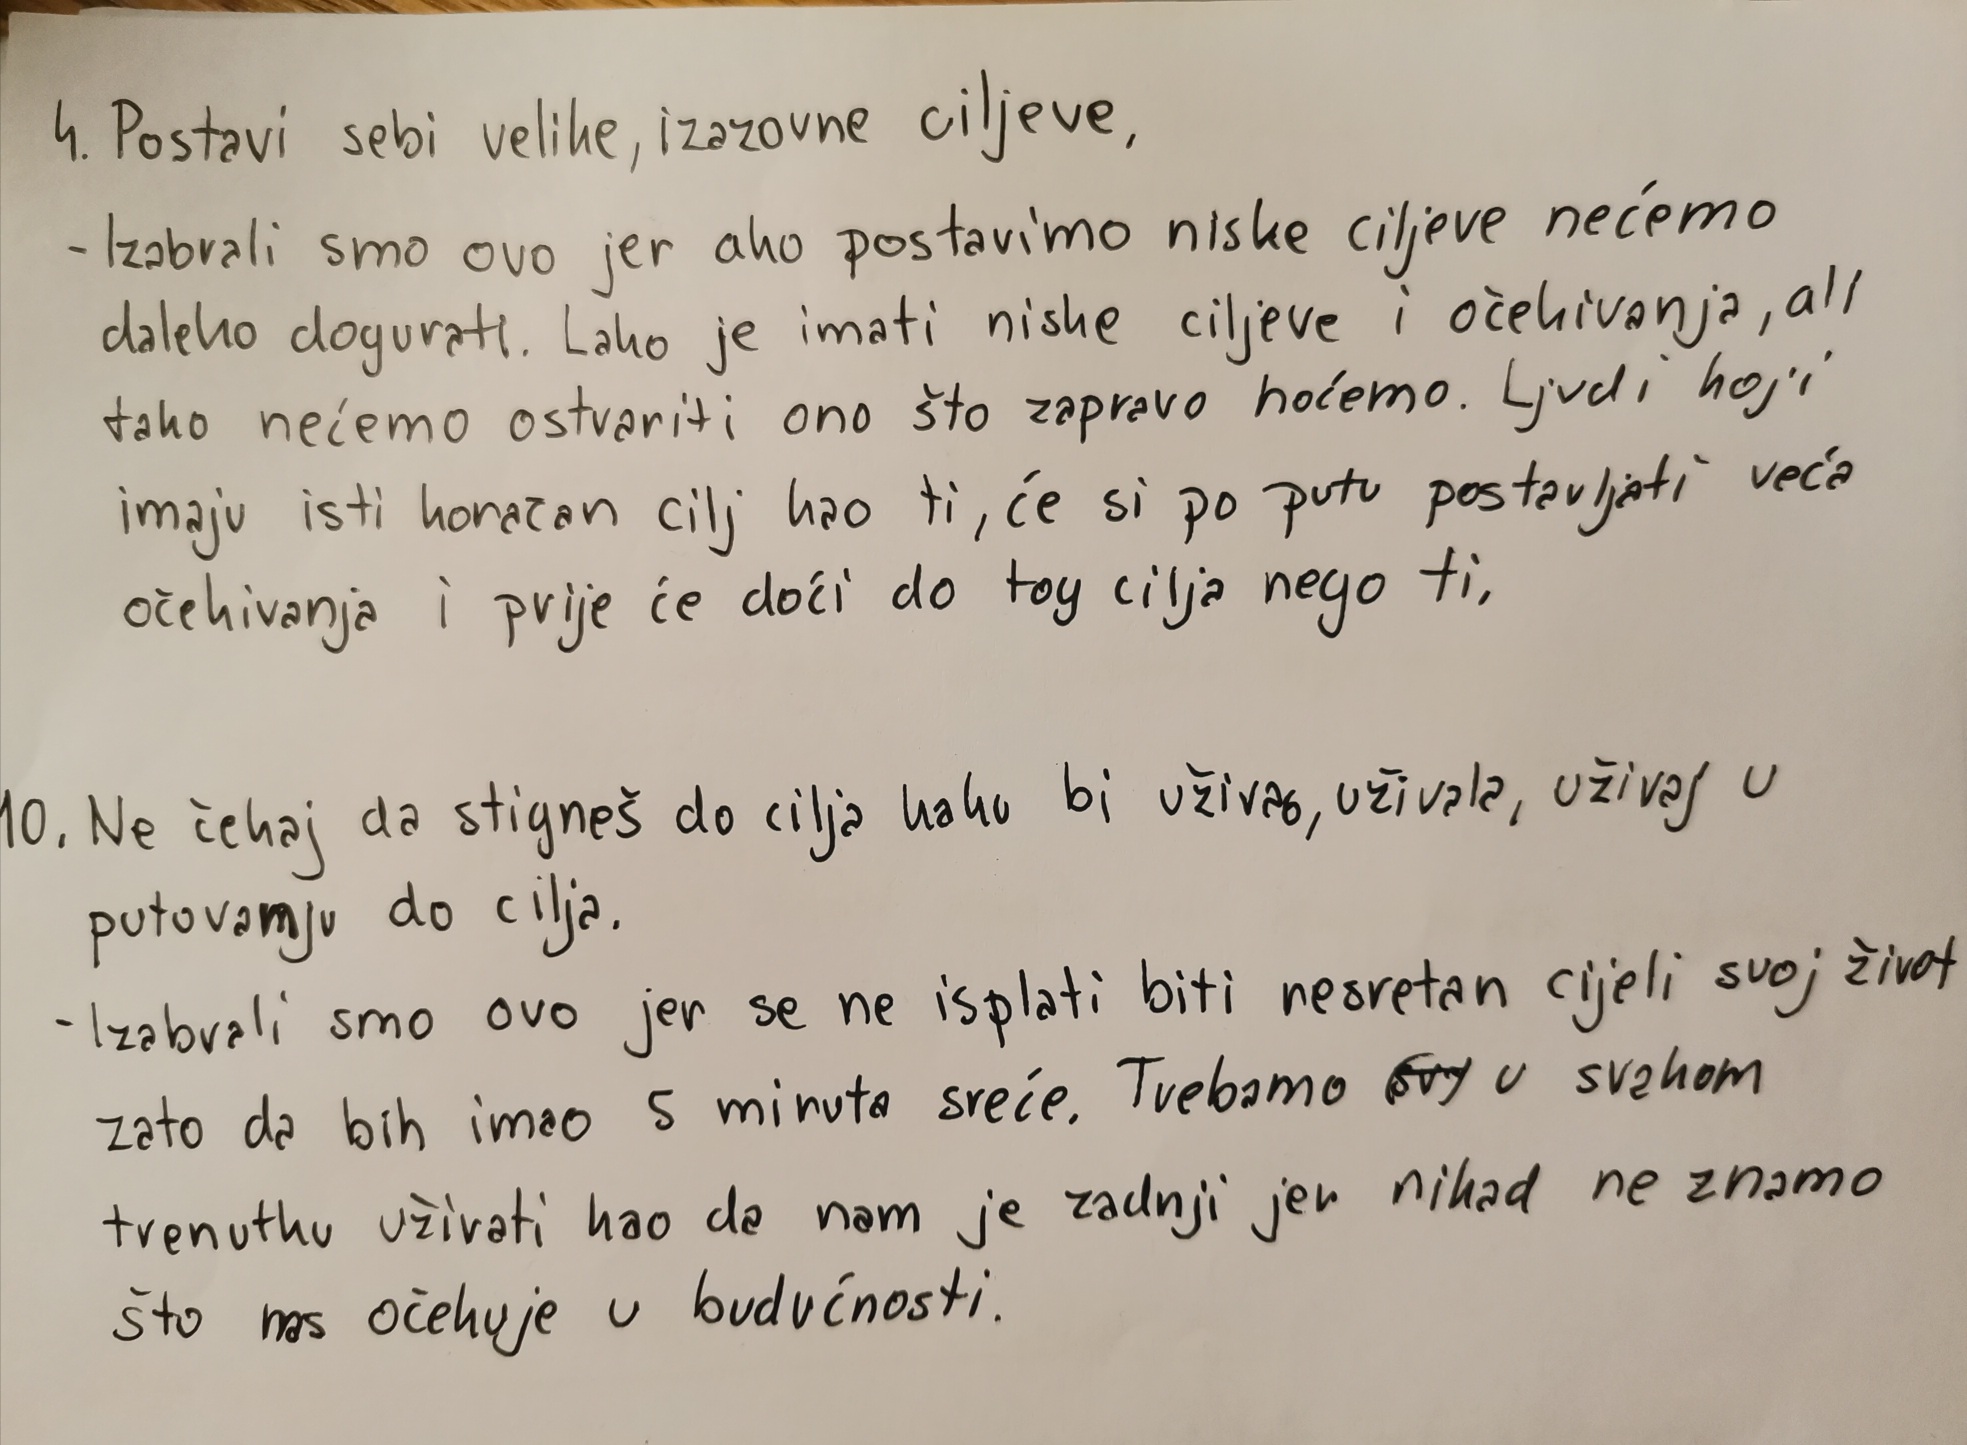 4. Postavi sebi velike, izazovne ciljeve,
- Izabrali smo ovo jer ako postavimo niske ciljeve nećemo
daleko dogurati. Lako je imati niske ciljeve i očekivanja, ali
tako nećemo ostvariti ono što zapravo hoćemo. Ljudi koji
imaju isti konačan cilj kao ti, će si po putu postavljati veća
očekivanja i prije će doći do tog cilja nego ti,
10. Ne čekaj da stigneš do cilja kako bi uživao, uživala, uživaj u
putovamju do cilja.
- Izabrali smo ovo jer se ne isplati biti nesretan cijeli svoj život
zato da bih imao 5 minuta sreće. Trebamo u svakom
trenutku uživati kao da nam je zadnji jer nikad ne znamo
što nas očekuje u budućnosti.